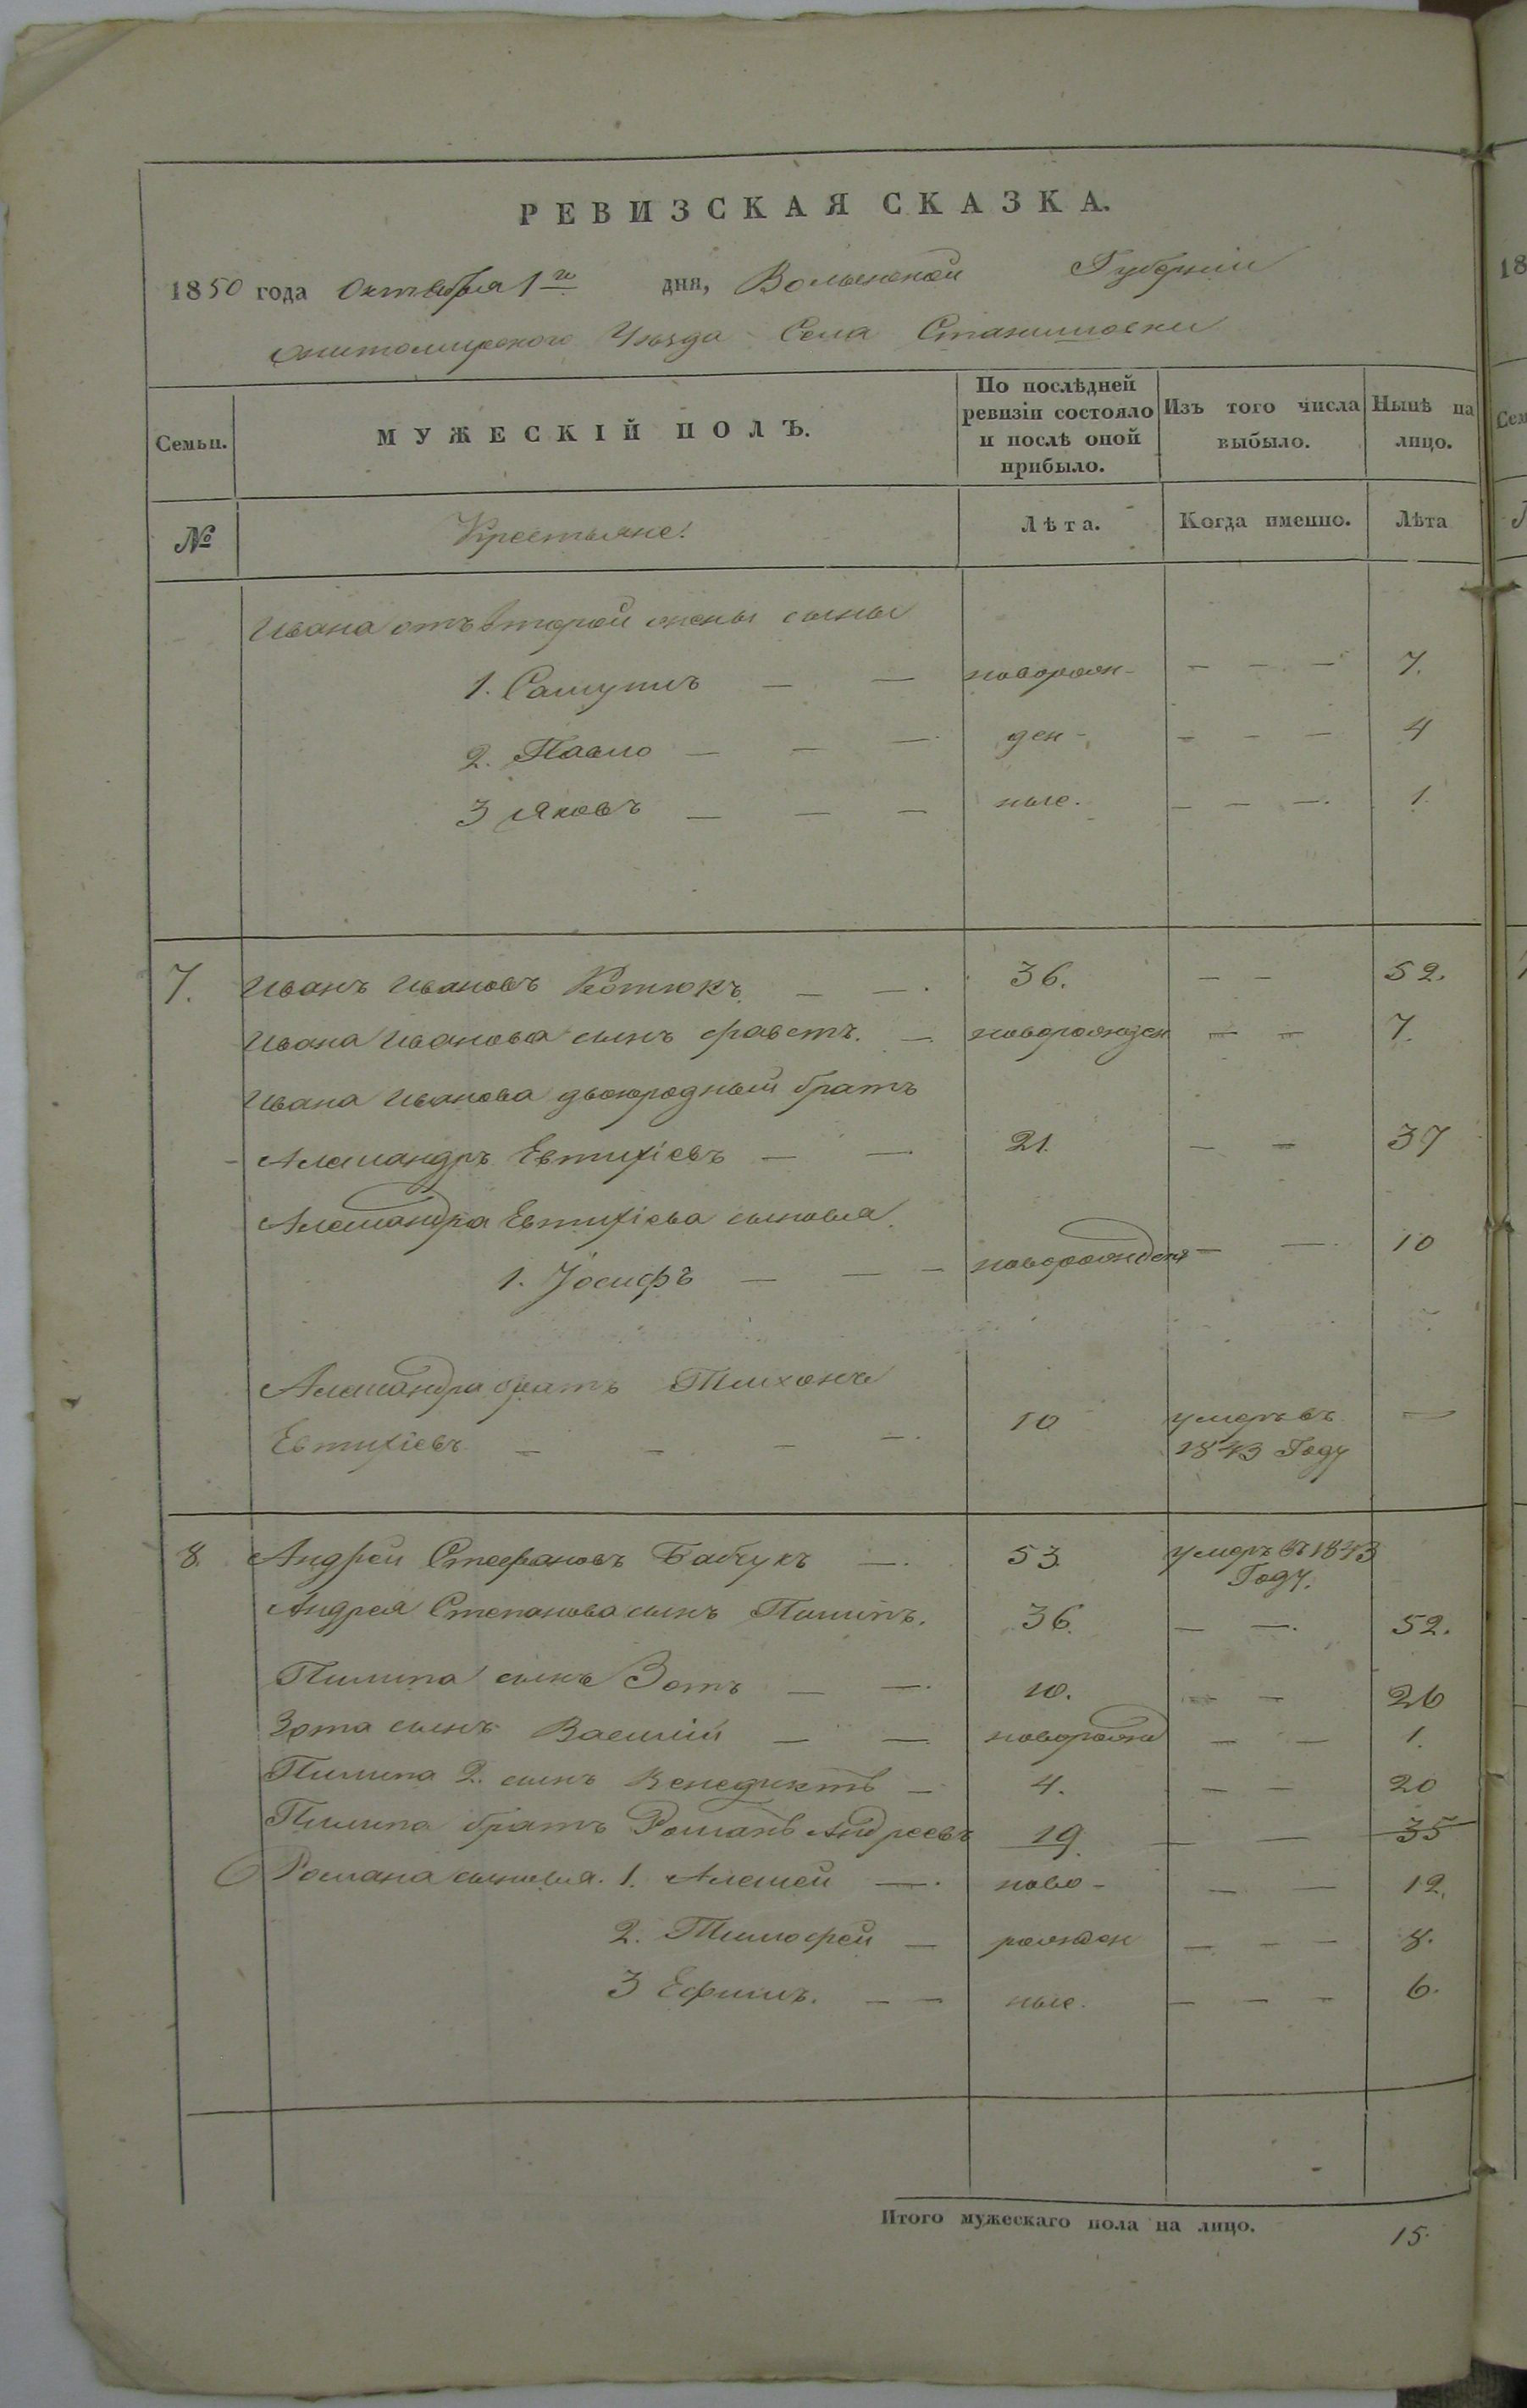 РЕВИЗСКАЯ СКАЗКА.
1850 года Октября 1го дня, Волынской Губерніи
Житомирского Уѣзда Села Станишовки
Семьи. МУЖЕСКІЙ ПОЛЪ. По послѣдней ревизіи состояло и послѣ оной прибыло. Изъ того числа выбыло. Нынѣ на лицо.
№ Крестьяне! Лѣта. Когда именно. Лѣта
Ивана отъ второй жены сыны
1. — — новорож- — — — 7.
2. Павло — — — ден- — — — 4
3 Яковъ — — — ные. — — — 1.
7. Иванъ Ивановъ Котюкъ — — 36. — — 52.
Ивана Иванова сынъ — новорожден — — 7.
Ивана Иванова двоюродный братъ
Александръ Евтихіевъ — — 21. — — 37
Александра Евтихіева сыновья
1. Іосифъ — — — новорожденъ — — 10
Александра братъ Тихонъ
Евтихіевъ — — — — 10 умеръ въ 1843 Году —
8 Андрей Стефановъ Бабчукъ — 53 умеръ въ 1843 Году.
Андрея Степанова сынъ Пилипъ. 36. — — 52.
Пилипа сынъ Зотъ — — 10. — — 26
Зота сынъ Василій — — новорожд — — 1.
Пилипа 2. сынъ Венедиктъ — 4. — — 20
Пилипа братъ Романъ Андреевъ 19. — — 35
Романа сыновья. 1. Алексей — ново- — — 12.
2. Тимофей — рожден — — — 8.
3 Ефимъ. — — ные. — — — 6.
Итого мужескаго пола на лицо. 15.